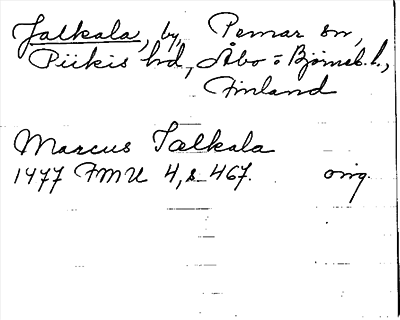 Jalkala, by, Pemar sn,
Piikis hd, Åbo = Björneb. l.,
Finland
Marcus Tælkala
1477 FMU 4, s. 467. orig.